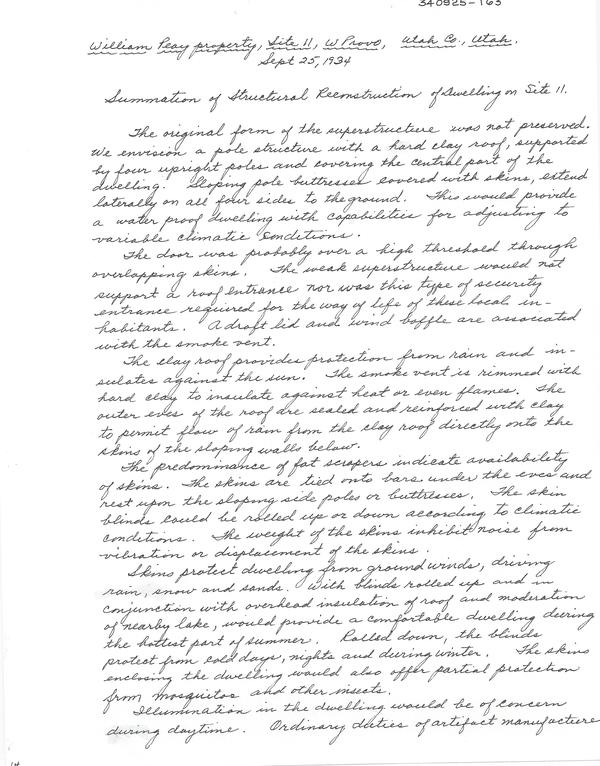 340925-163
William Peay property, Site 11, W Provo, Utah Co., Utah.
Sept 25, 1934
Summation of Structural Reconstruction of Dwelling on Site 11.
The original form of the superstructure was not preserved.
We envision a pole structure with a hard clay roof, supported
by four upright poles and covering the central part of the
dwelling. Sloping pole buttresses covered with skins, extend
laterally on all four sides to the ground. This would provide
a water proof dwelling with capabilities for adjusting to
variable climatic conditions.
The door was probably over a high threshold through
overlapping skins. The weak superstructure would not
support a roof entrance nor was this type of security
entrance required for the way of life of these local in-
habitants. A draft lid and wind baffle are associated
with the smoke vent.
The clay roof provides protection from rain and in-
sulates against the sun. The smoke vent is rimmed with
hard clay to insulate against heat or even flames. The
outer eves of the roof are sealed and reinforced with clay
to permit flow of rain from the clay roof directly onto the
skins of the sloping walls below.
The predominance of fat scrapers indicate availability
of skins. The skins are tied onto bars under the eves and
rest upon the sloping side poles or buttresses. The skin
blinds could be rolled up or down according to climatic
conditions. The weight of the skins inhibit noise from
vibration or displacement of the skins.
Skins protect dwelling from ground winds, driving
rain, snow and sands. With blinds rolled up and in
conjunction with overhead insulation of roof and moderation
of nearby lake, would provide a comfortable dwelling during
the hottest part of summer. Rolled down, the blinds
protect from cold days, nights and during winter. The skins
enclosing the dwelling would also offer partial protection
from mosquitos and other insects.
Illumination in the dwelling would be of concern
during daytime. Ordinary duties of artifact manufacture